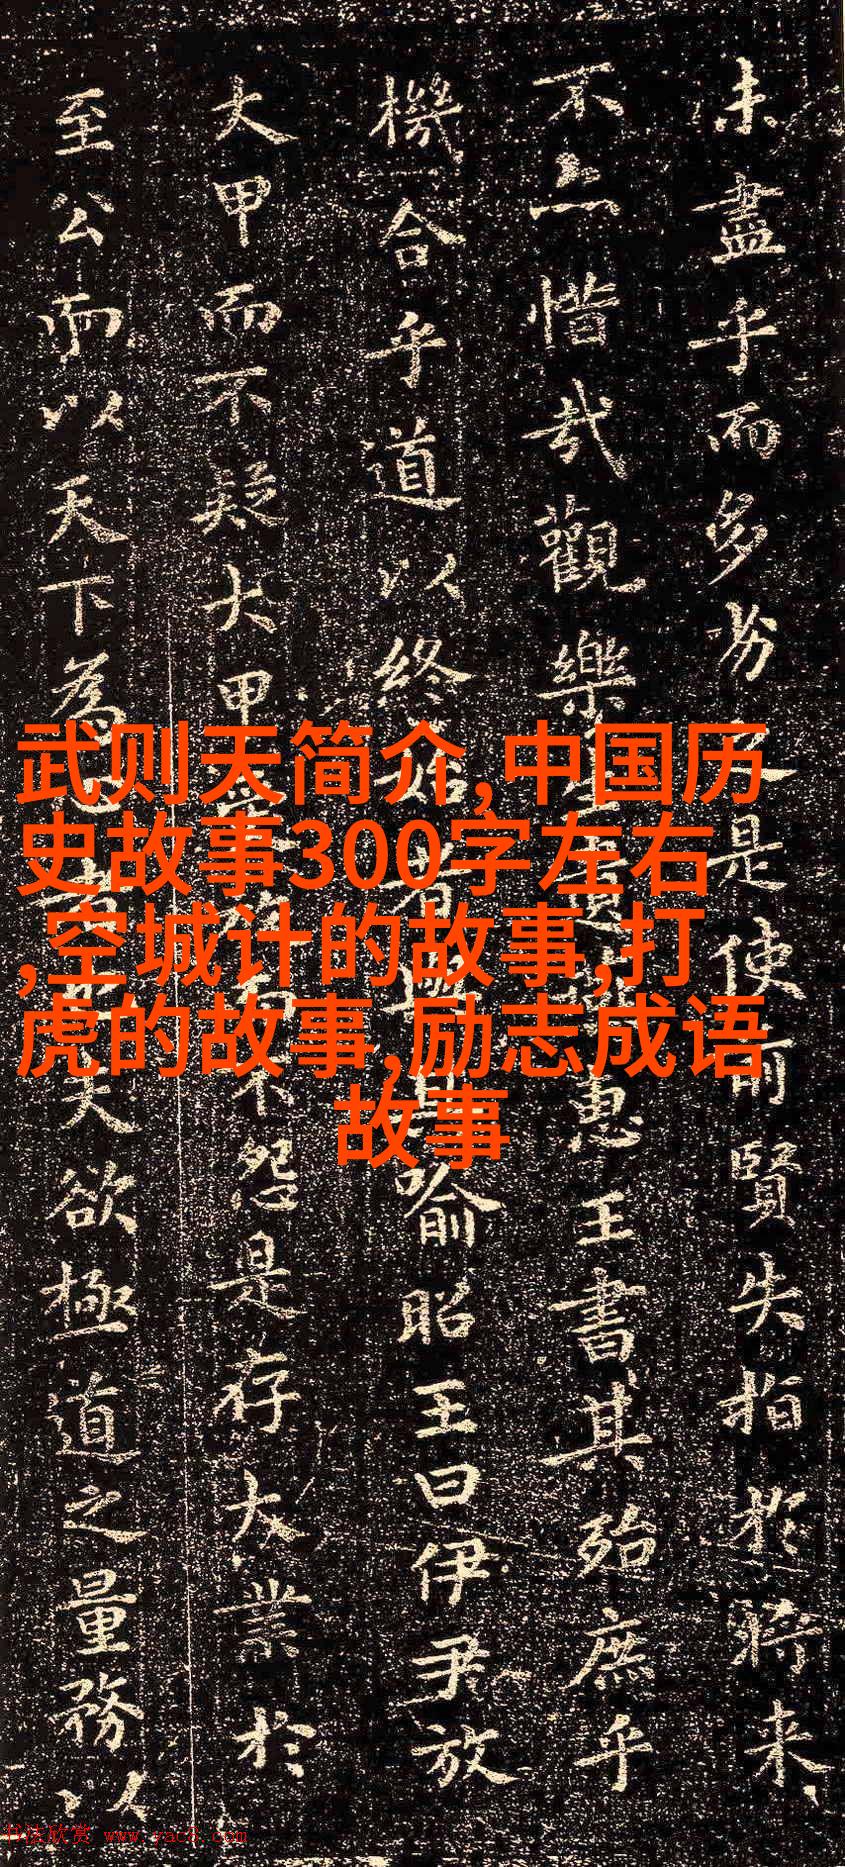 未盡乎而多劣之是使前賢失指於將来
不亦惜哉觀樂生遺惠王書其殆庶乎
機合乎道以終始者與其喻昭王曰伊尹放
大甲而不疑大甲受放而不怨是存大業於
至公而以天下為心者也夫欲極道之量務以
武则天简介,中国历
史故事300字左右
,空城计的故事,打
虎的故事,励志成语
故事
书法欣赏 www.yac8.com